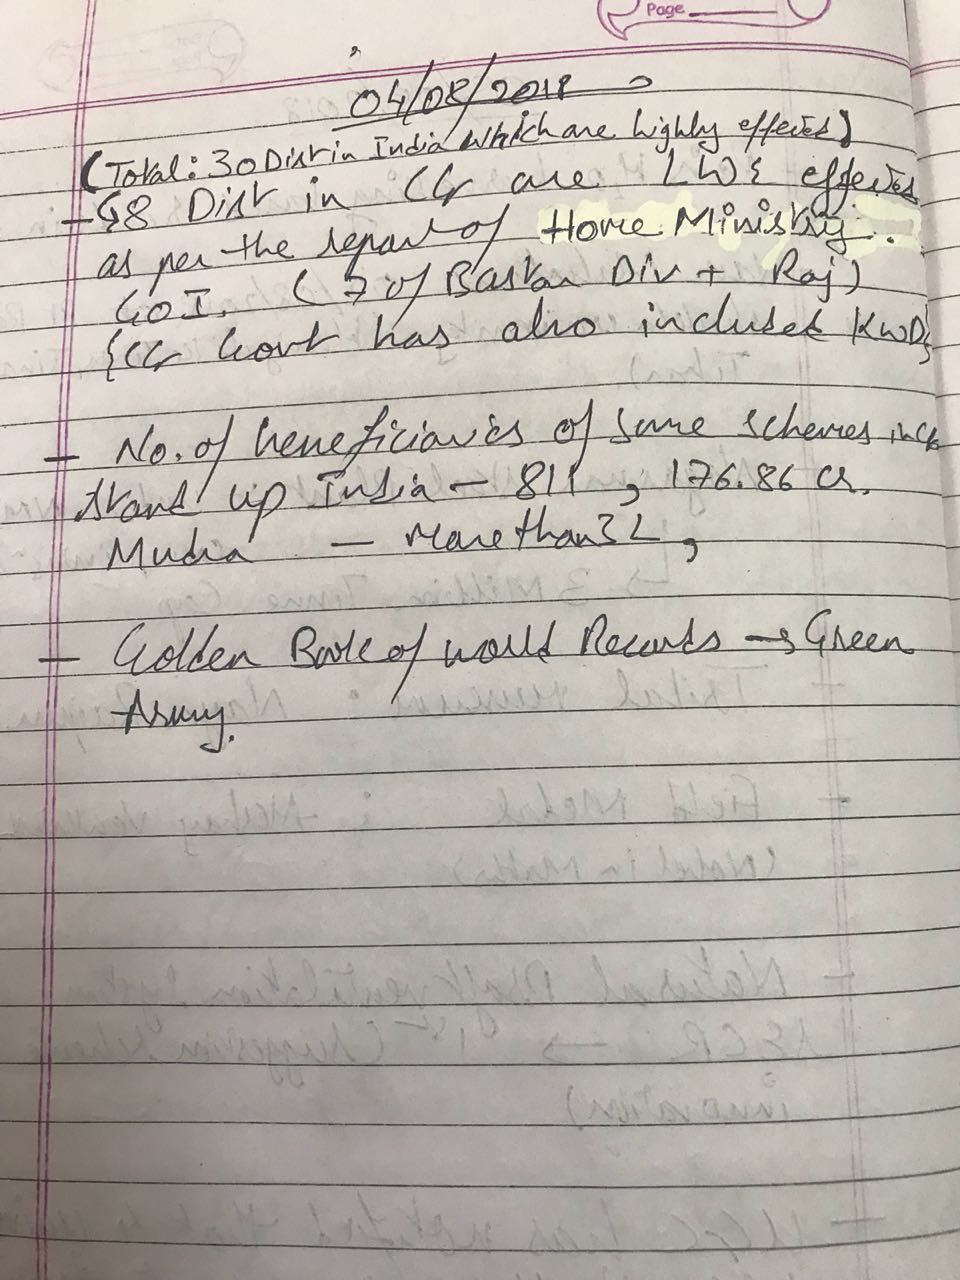 Page
04/08/2018
(Total: 30 Dist in India which are highly effected)
- 8 Dist in CG are LWE effected
as per the report of Home Ministry.
GOI. (7 of Bastar Div + Raj)
{CG Govt has also included KWD}
- No. of beneficiaries of some schemes in CG
Stand up India - 811, 176.86 Cr.
Mudra - More than 3 L,
- Golden Book of World Records → Green
Army.